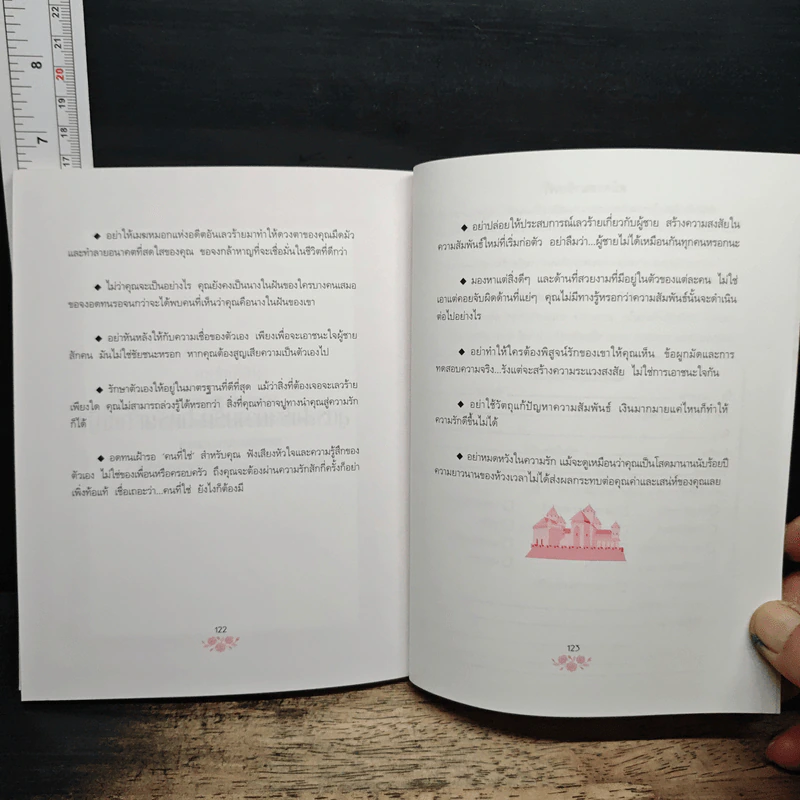 8
7
22
21
20
19
18
17
◆ อย่าให้เมฆหมอกแห่งอดีตอันเลวร้ายมาทำให้ดวงตาของคุณมืดมัว
และทำลายอนาคตที่สดใสของคุณ ขอจงกล้าหาญที่จะเชื่อมั่นในชีวิตที่ดีกว่า
◆ ไม่ว่าคุณจะเป็นอย่างไร คุณยังคงเป็นนางในฝันของใครบางคนเสมอ
ขอจงอดทนรอจนกว่าจะได้พบคนที่เห็นว่าคุณคือนางในฝันของเขา
◆ อย่าหันหลังให้กับความเชื่อของตัวเอง เพียงเพื่อจะเอาชนะใจผู้ชาย
สักคน มันไม่ใช่ชัยชนะหรอก หากคุณต้องสูญเสียความเป็นตัวเองไป
◆ รักษาตัวเองให้อยู่ในมาตรฐานที่ดีที่สุด แม้ว่าสิ่งที่ต้องเจอจะเลวร้าย
เพียงใด คุณไม่สามารถล่วงรู้ได้หรอกว่า สิ่งที่คุณทำอาจปูทางนำคุณสู่ความรัก
ก็ได้
◆ อดทนเฝ้ารอ 'คนที่ใช่' สำหรับคุณ ฟังเสียงหัวใจและความรู้สึกของ
ตัวเอง ไม่ใช่ของเพื่อนหรือครอบครัว ถึงคุณจะต้องผ่านความรักสักกี่ครั้งก็อย่า
เพิ่งท้อแท้ เชื่อเถอะว่า...คนที่ใช่ ยังไงก็ต้องมี
122
◆ อย่าปล่อยให้ประสบการณ์เลวร้ายเกี่ยวกับผู้ชาย สร้างความสงสัยใน
ความสัมพันธ์ใหม่ที่เริ่มก่อตัว อย่าลืมว่า...ผู้ชายไม่ได้เหมือนกันทุกคนหรอกนะ
◆ มองหาแต่สิ่งดีๆ และด้านที่สวยงามที่มีอยู่ในตัวของแต่ละคน ไม่ใช่
เอาแต่คอยจับผิดด้านที่แย่ๆ คุณไม่มีทางรู้หรอกว่าความสัมพันธ์นั้นจะดำเนิน
ต่อไปอย่างไร
◆ อย่าทำให้ใครต้องพิสูจน์รักของเขาให้คุณเห็น ข้อผูกมัดและการ
ทดสอบความจริง...รังแต่จะสร้างความระแวงสงสัย ไม่ใช่การเอาชนะใจกัน
◆ อย่าใช้วัตถุแก้ปัญหาความสัมพันธ์ เงินมากมายแค่ไหนก็ทำให้
ความรักดีขึ้นไม่ได้
◆ อย่าหมดหวังในความรัก แม้จะดูเหมือนว่าคุณเป็นโสดมานานนับร้อยปี
ความยาวนานของห้วงเวลาไม่ได้ส่งผลกระทบต่อคุณค่าและเสน่ห์ของคุณเลย
123